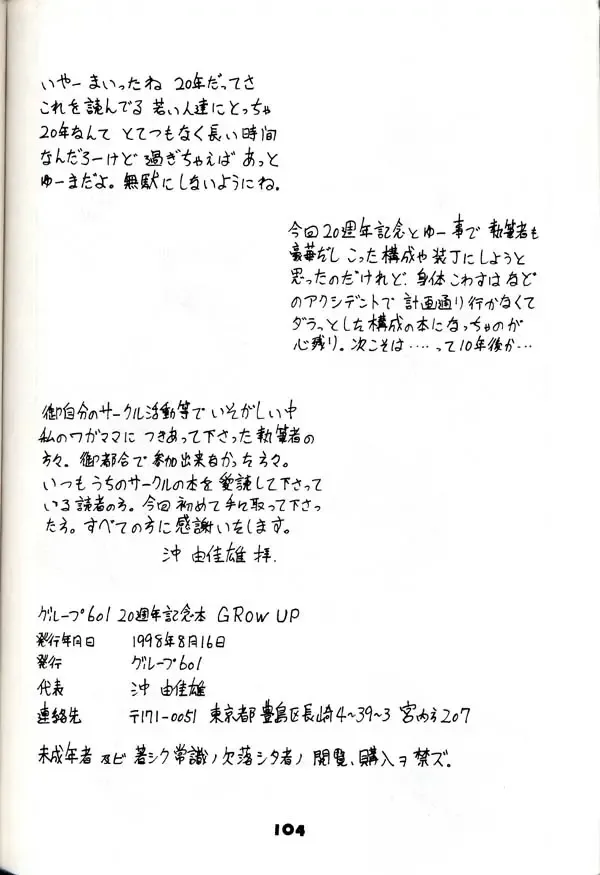 いやー まいったね 20年だってさ
これを読んでる 若い人達にとっちゃ
20年なんて とてつもなく長い時間
なんだろーけど 過ぎちゃえば あっと
ゆーまだよ。無駄にしないようにね。
今回20週年記念とゆー事で 執筆者も
豪華だし こった構成や装丁にしようと
思ったのだけれど、身体こわすは など
のアクシデントで 計画通り行かなくて
ダラっとした構成の本になっちゃのが
心残り。次こそは……って10年後か…
御自分のサークル活動等で いそがしい中
私のワガママに つきあって下さった執筆者の
方々。御都合で参加出来なかった方々。
いつもうちのサークルの本を 愛読して下さって
いる読者の方。今回 初めて手に取って下さっ
た方。すべての方に感謝いたします。
沖 由佳雄 拝.
グループ601 20週年記念本 GROW UP
発行年月日 1998年8月16日
発行 グループ601
代表 沖 由佳雄
連絡先 〒171-0051 東京都 豊島区長崎4~39~3 宮め方207
未成年者 及ビ 著シク常識ノ欠落シタ者ノ 閲覧、購入ヲ禁ズ。
104